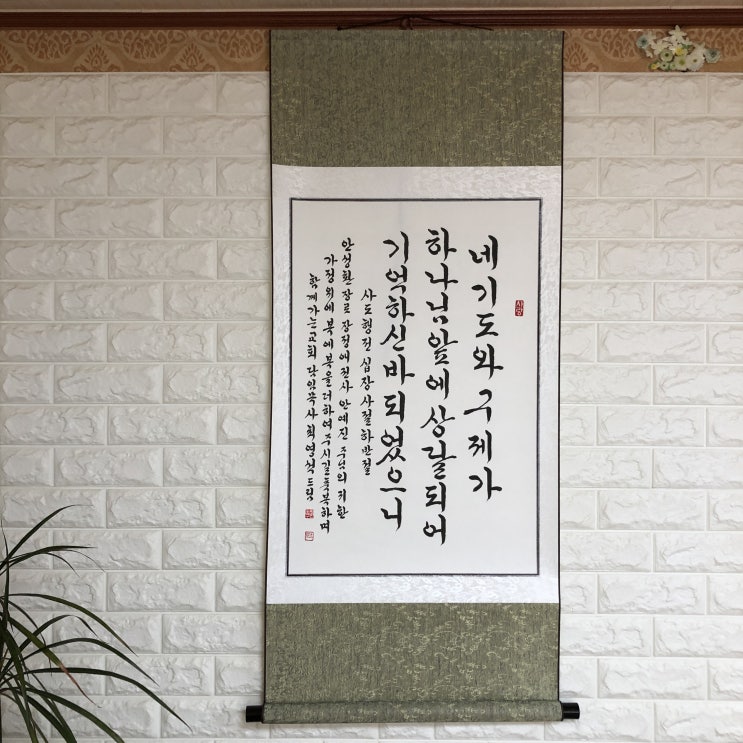 네 기도와 구제가
하나님 앞에 상달되어
기억하신 바 되었으니
사도행전 십장 사절 하반절
안성환 장로 장정애 권사 안예진 주님의 귀한
가정 위에 복에 복을 더하여 주시길 축복하며
함께가는교회 담임목사 최영식 드림
사랑